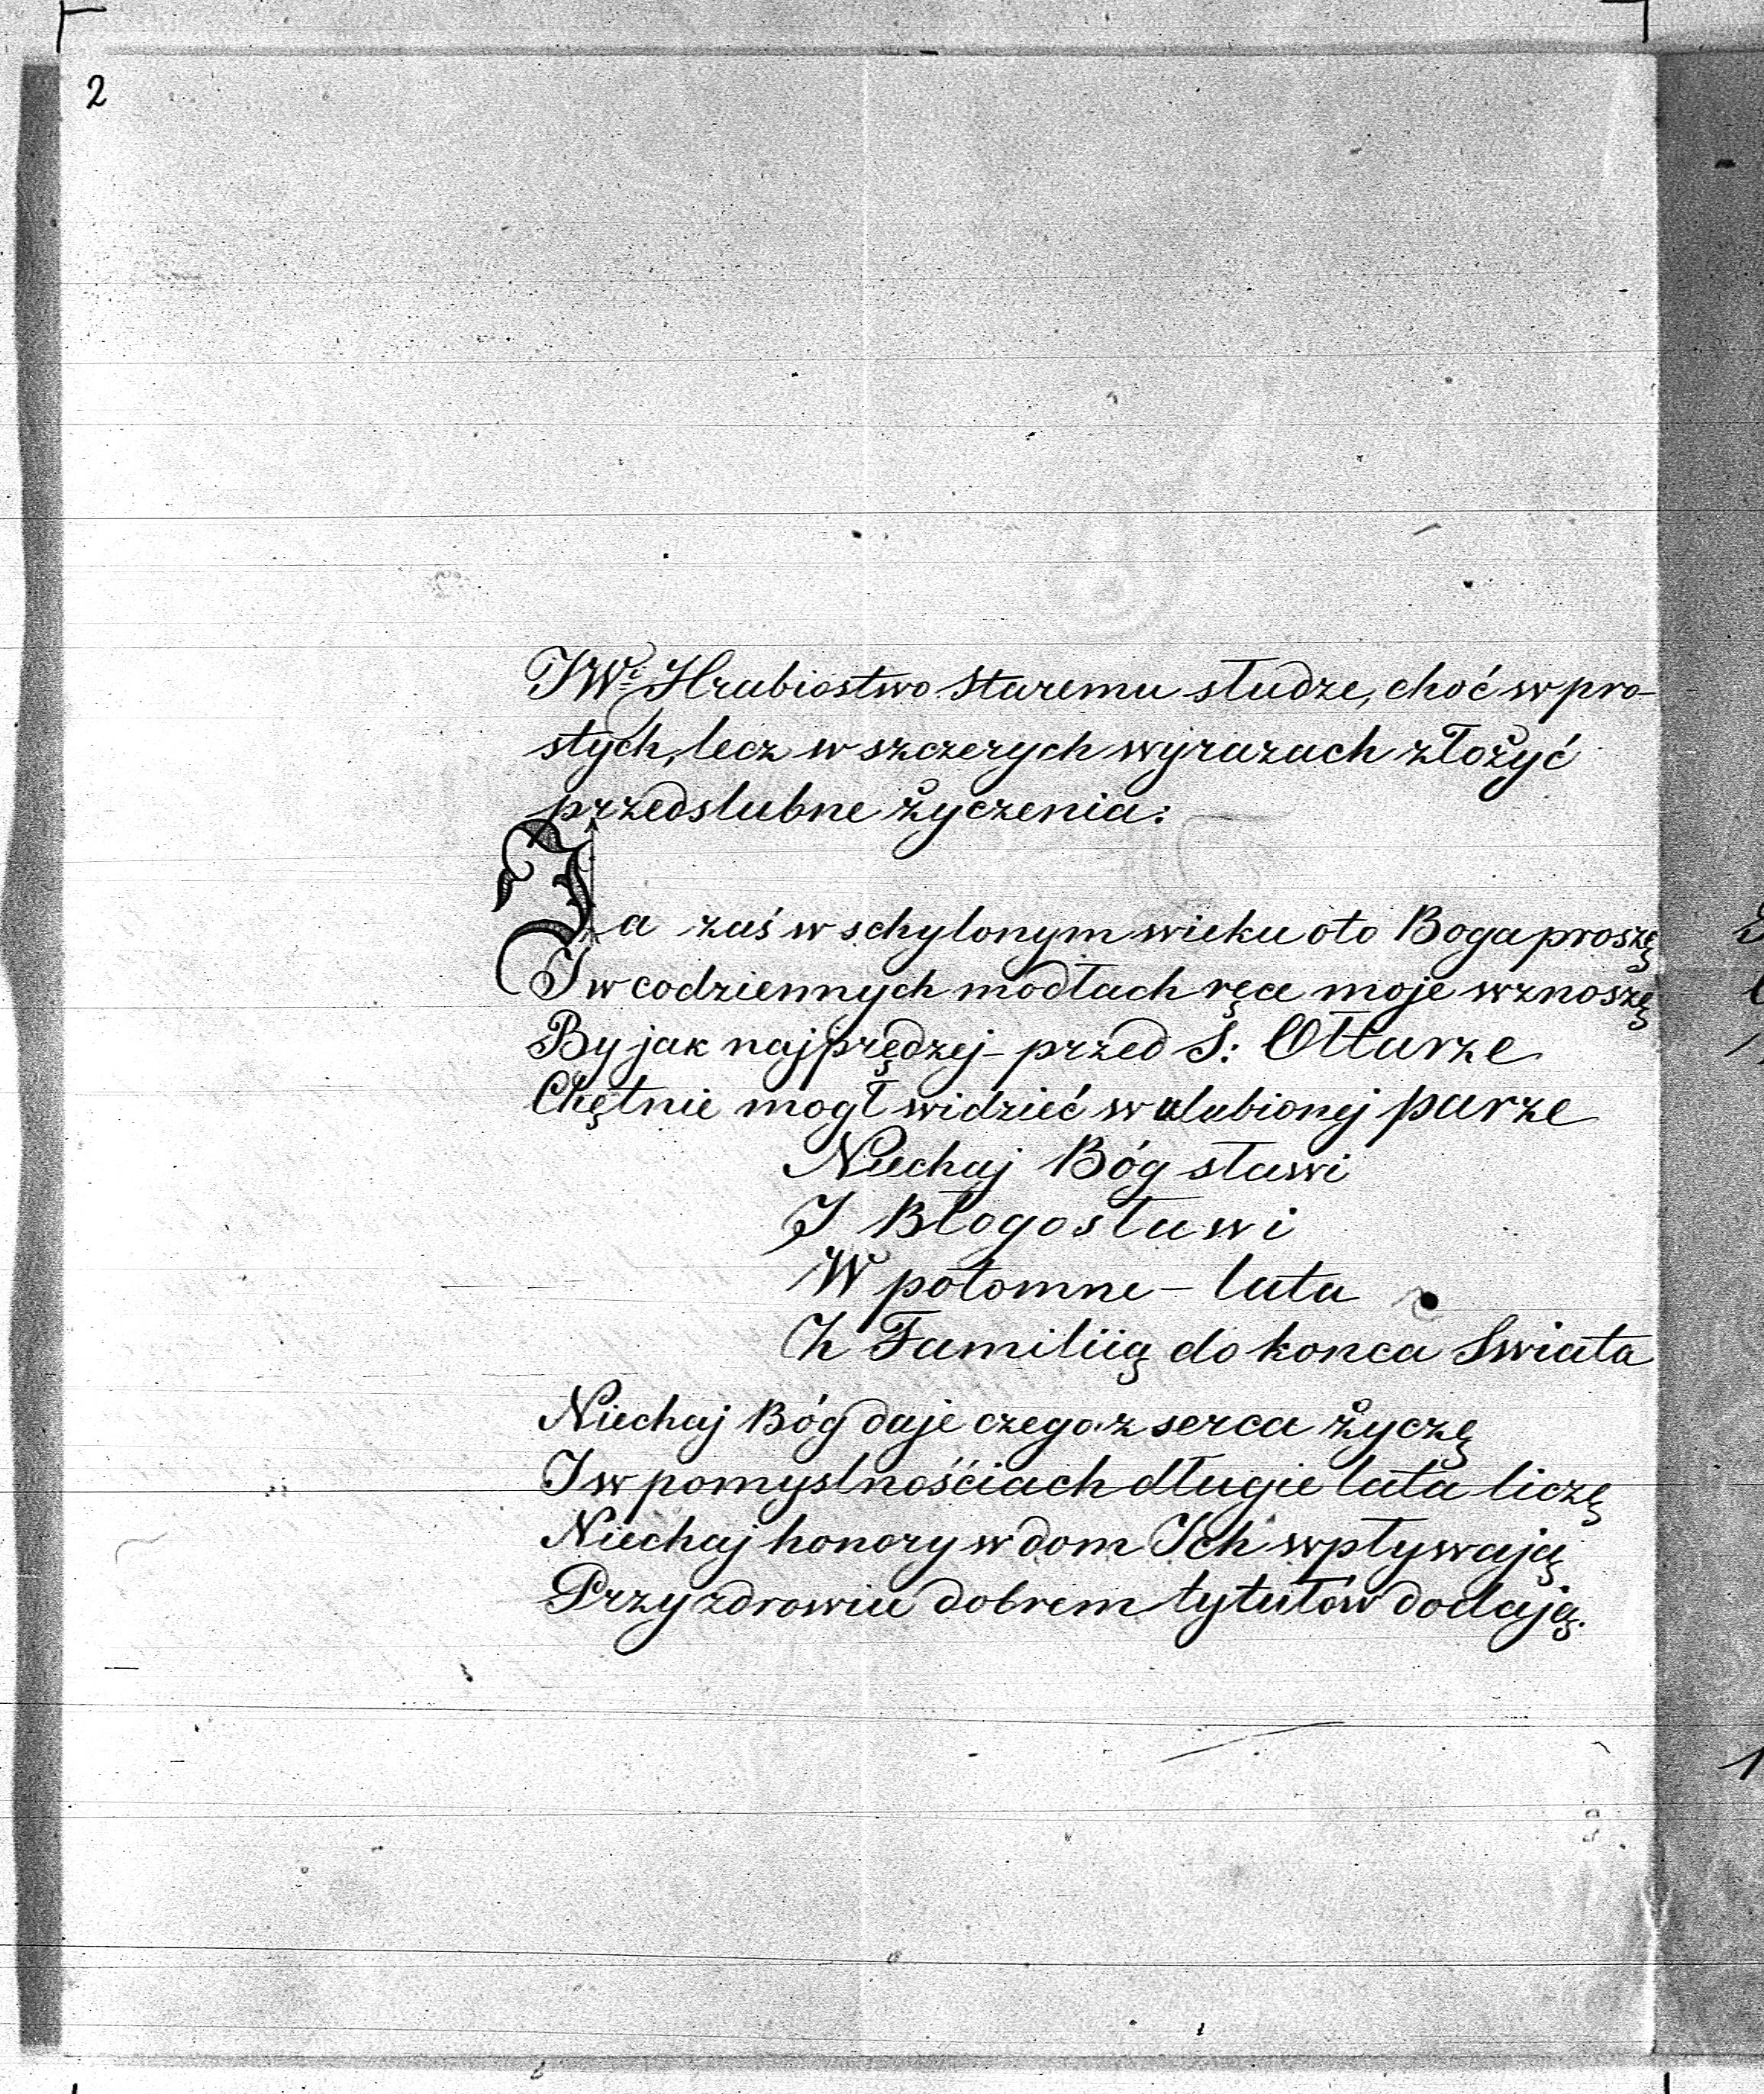 2
JWi Hrabiostwo staremu słudze, choć w pro-
stych, lecz w szczerych wyrazach złożyć
przedslubne życzenia:
Ja zaś w schylonym wieku oto Boga proszę
I w codziennych modłach ręce moje wznoszę
By jak najprędzej - przed S: Ołtarze
Chętnie mogł widzieć w ulubionej parze
Niechaj Bóg sławi
I Błogosławi
W potomne - lata
Z Familiią do konca Swiata
Niechaj Bóg daje czego z serca życzę
I w pomyslnościach długie lata liczę
Niechaj honory w dom Ich wpływają
Przy zdrowiu dobrem tytułów dodają.